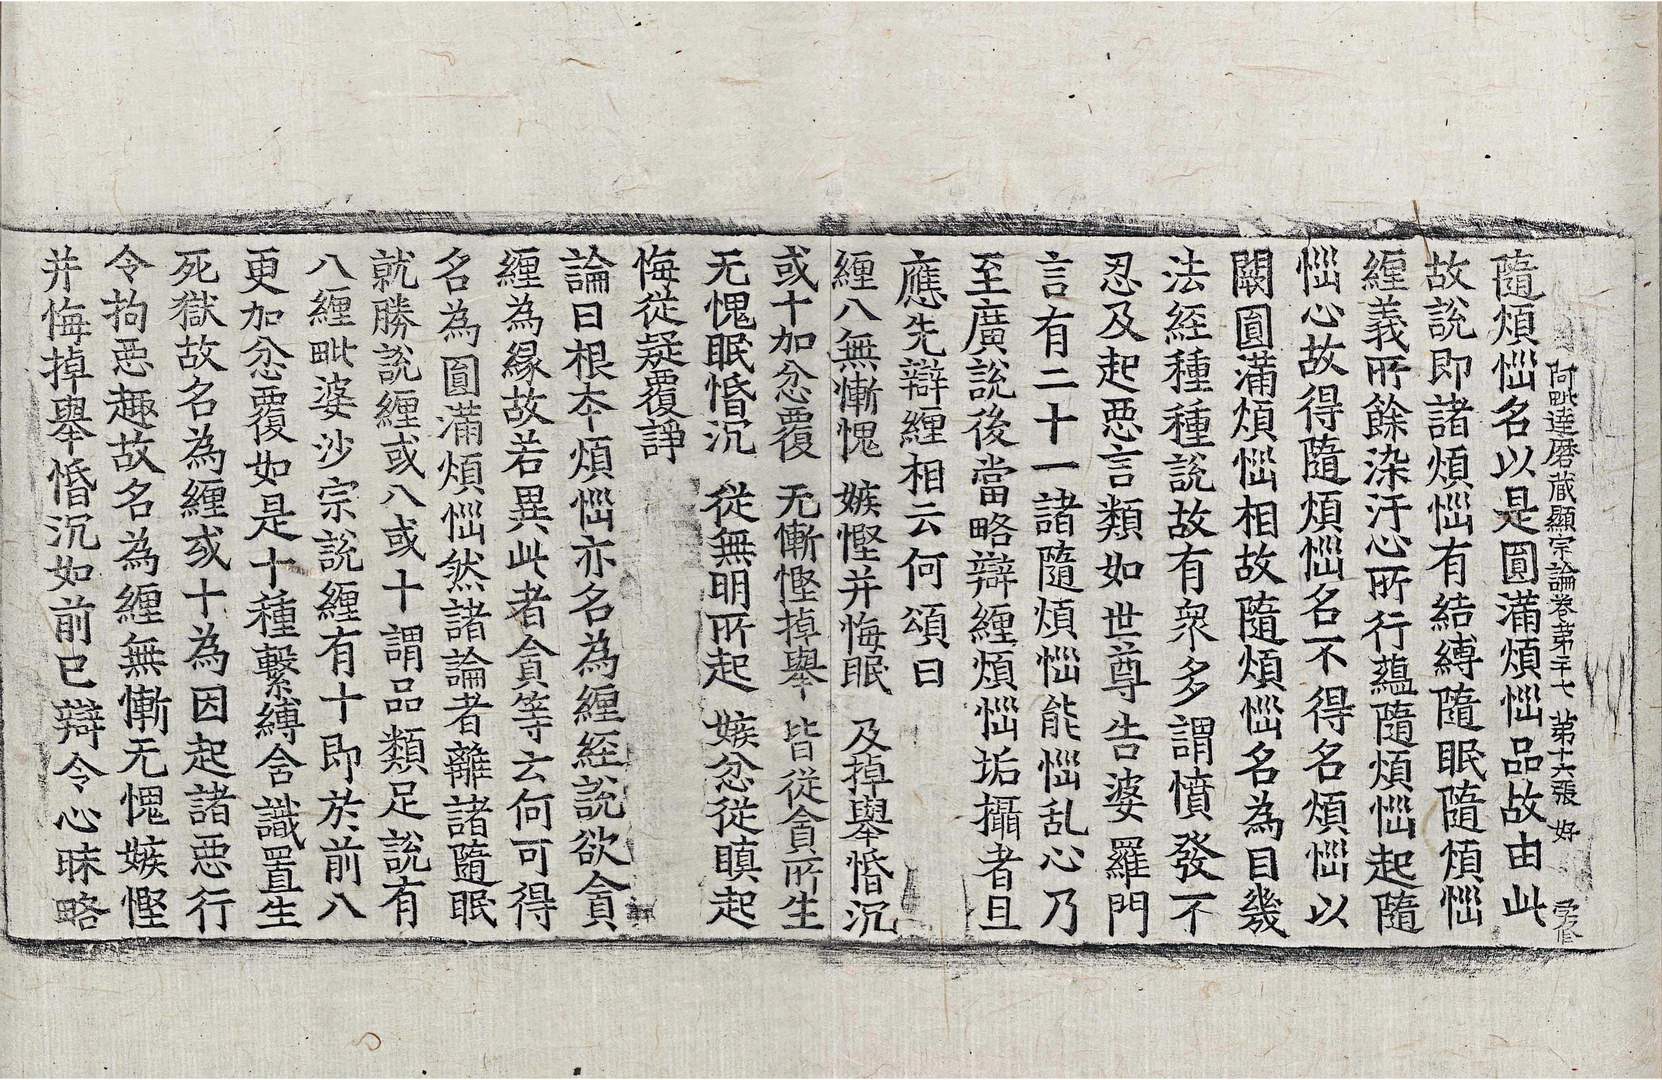 阿毗達磨藏顯宗論卷第二十七　第十六張　好
隨煩惱名以是圓滿煩惱品故由此
故說即諸煩惱有結縛隨眠隨煩惱
纏義所餘染汙心所行蘊隨煩惱起隨
惱心故得隨煩惱名不得名煩惱以
闕圓滿煩惱相故隨煩惱名為目幾
法經種種說故有衆多謂憤發不
忍及起惡言類如世尊告婆羅門
言有二十一諸隨煩惱能惱乱心乃
至廣說後當略辯纏煩惱垢攝者且
應先辯纏相云何頌曰
纏八無慚愧　嫉慳并悔眠　及掉舉惛沉
或十加忿覆　无慚慳掉舉　皆從貪所生
无愧眠惛沉　從無明所起　嫉忿從瞋起
悔從疑覆諍
論曰根本煩惱亦名為纏經說欲貪
纏為緣故若異此者貪等云何可得
名為圓滿煩惱然諸論者離諸隨眠
就勝說纏或八或十謂品類足說有
八纏毗婆沙宗說纏有十即於前八
更加忿覆如是十種繫縛含識置生
死獄故名為纏或十為因起諸惡行
令拘惡趣故名為纏無慚无愧嫉慳
并悔掉舉惛沉如前已辯令心昧略